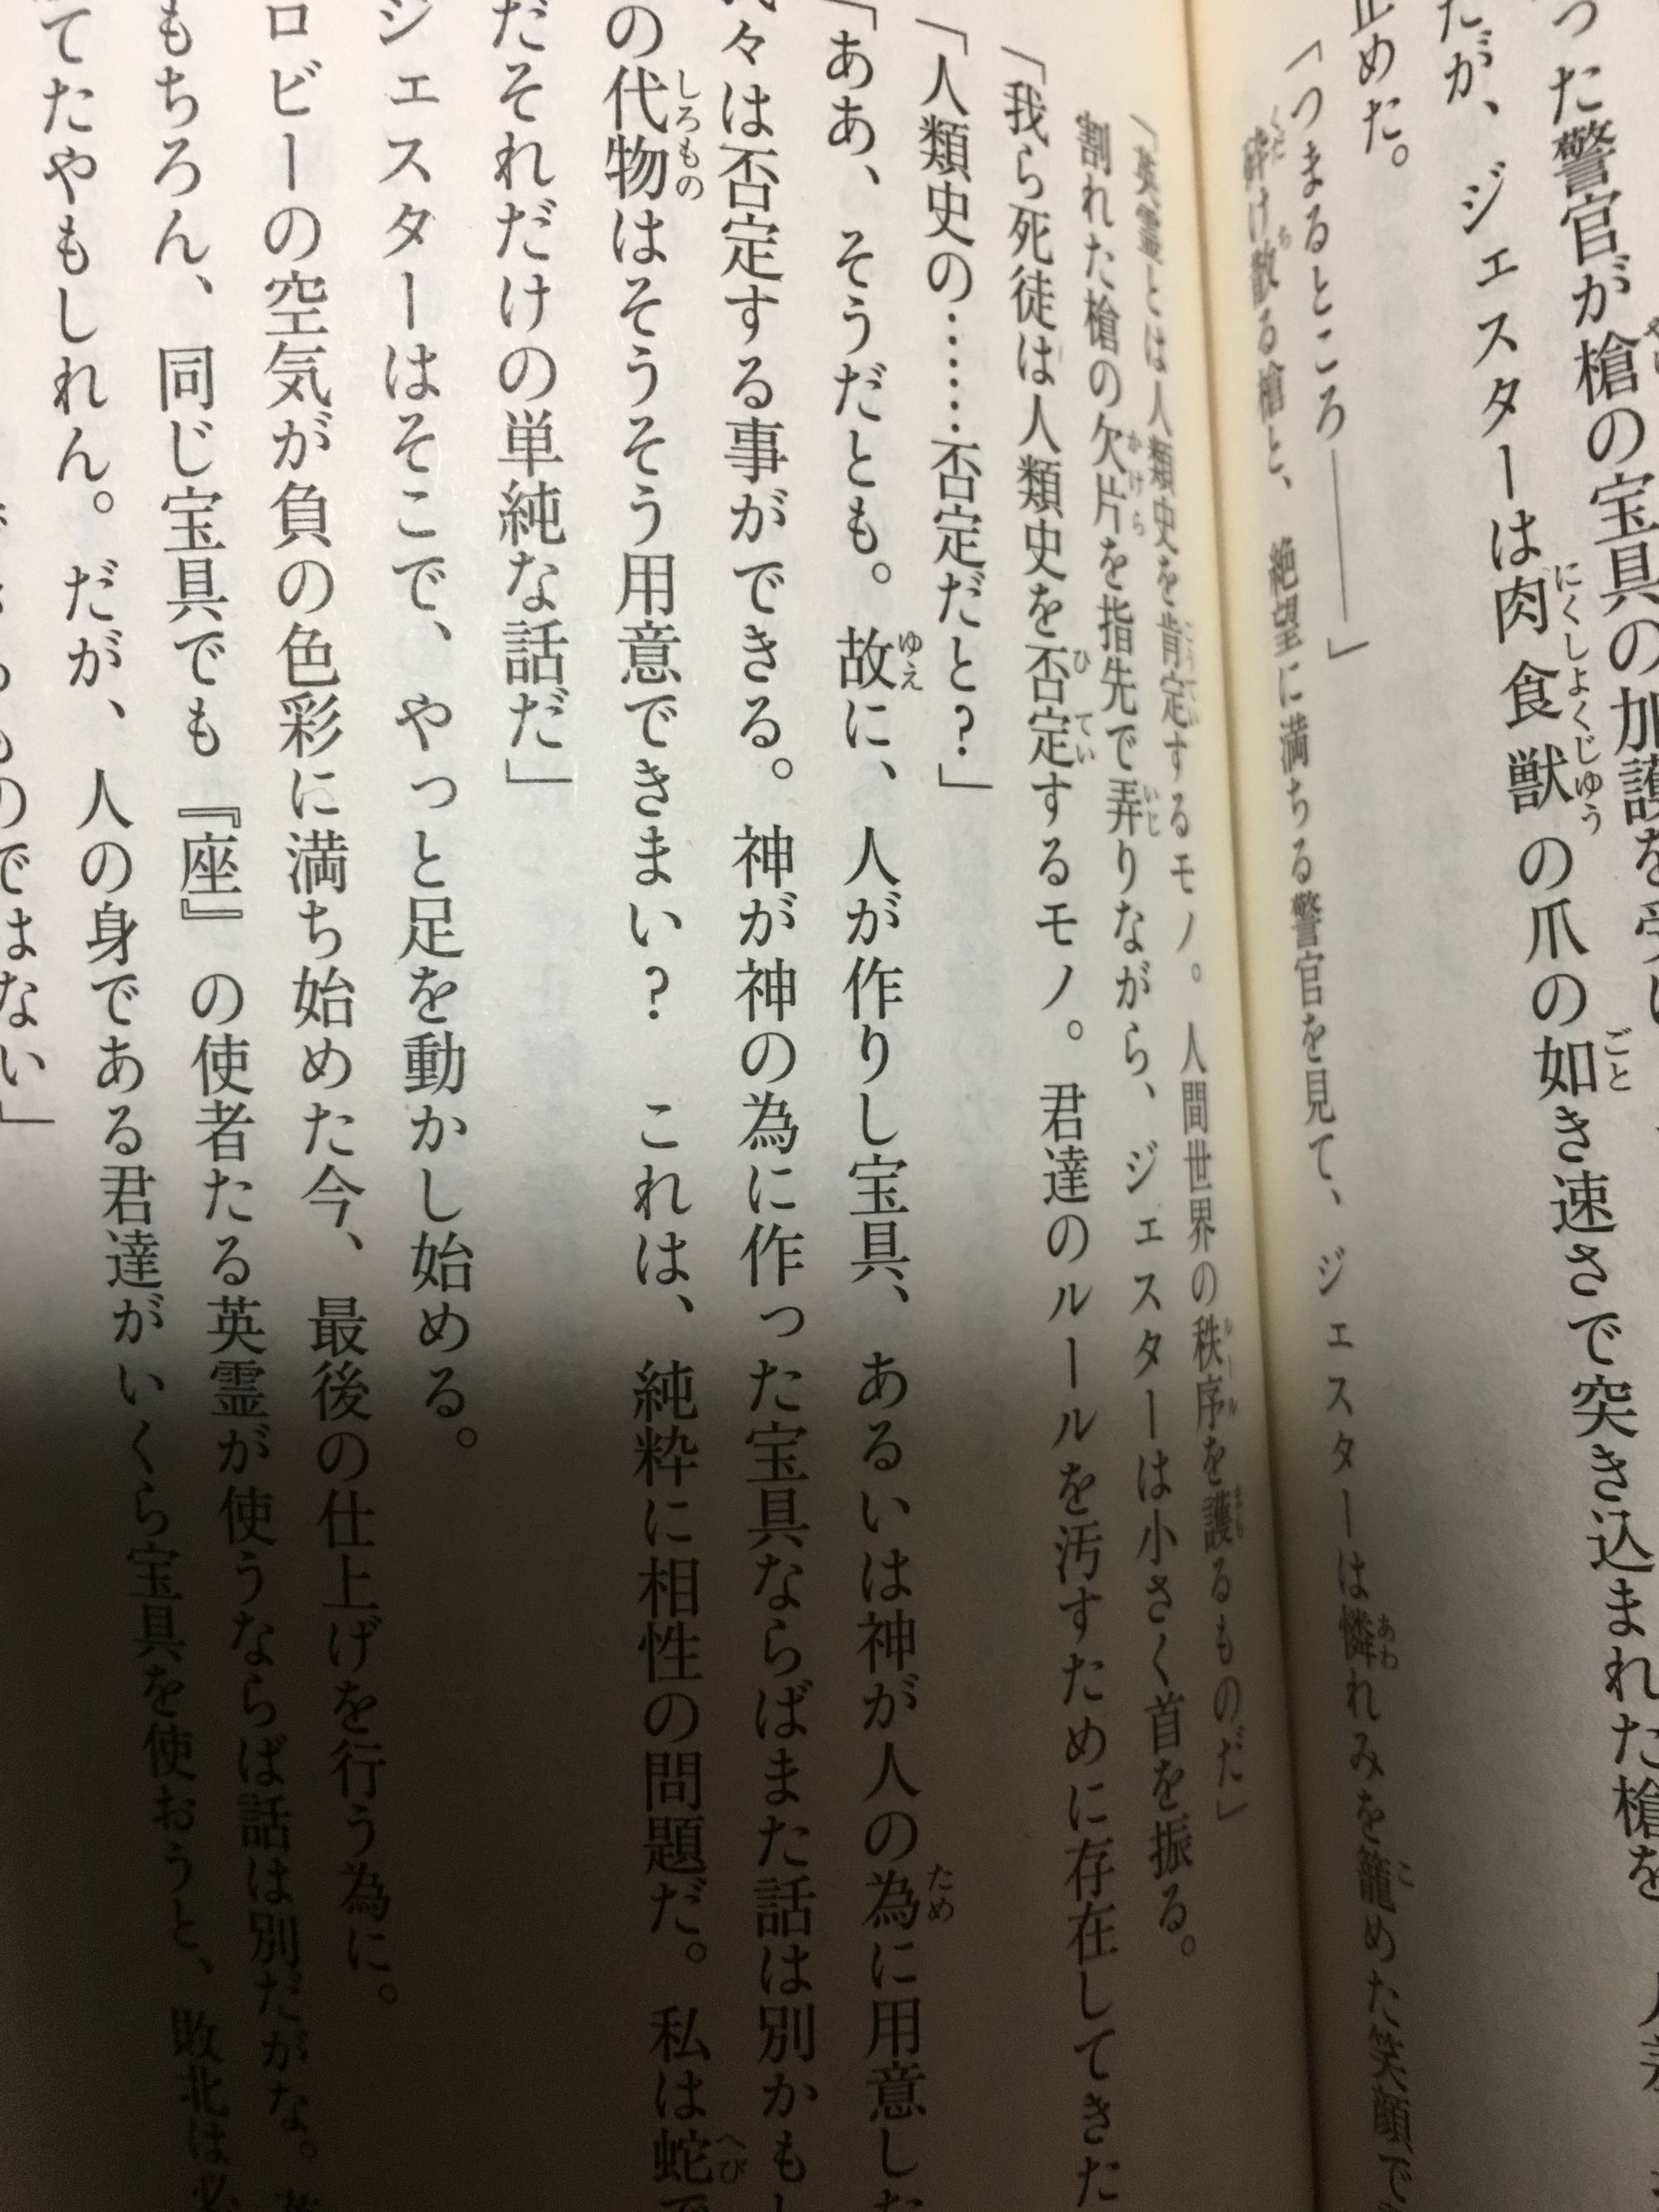 った警官が槍の宝具の加護を受け
だが、ジェスターは肉食獣の爪の如き速さで突き込まれた槍を
止めた。
「つまるところ――――」
砕け散る槍と、絶望に満ちる警官を見て、ジェスターは憐れみを籠めた笑顔で
「英霊とは人類史を肯定するモノ。人間世界の秩序を護るものだ」
割れた槍の欠片を指先で弄りながら、ジェスターは小さく首を振る。
「我ら死徒は人類史を否定するモノ。君達のルールを汚すために存在してきた
「人類史の……否定だと?」
「ああ、そうだとも。故に、人が作りし宝具、あるいは神が人の為に用意した
々は否定する事ができる。神が神の為に作った宝具ならばまた話は別かもし
の代物はそうそう用意できまい? これは、純粋に相性の問題だ。私は蛇で
だそれだけの単純な話だ」
ジェスターはそこで、やっと足を動かし始める。
ロビーの空気が負の色彩に満ち始めた今、最後の仕上げを行う為に。
もちろん、同じ宝具でも『座』の使者たる英霊が使うならば話は別だがな。
てたやもしれん。だが、人の身である君達がいくら宝具を使おうと、敗北は必
のではない」